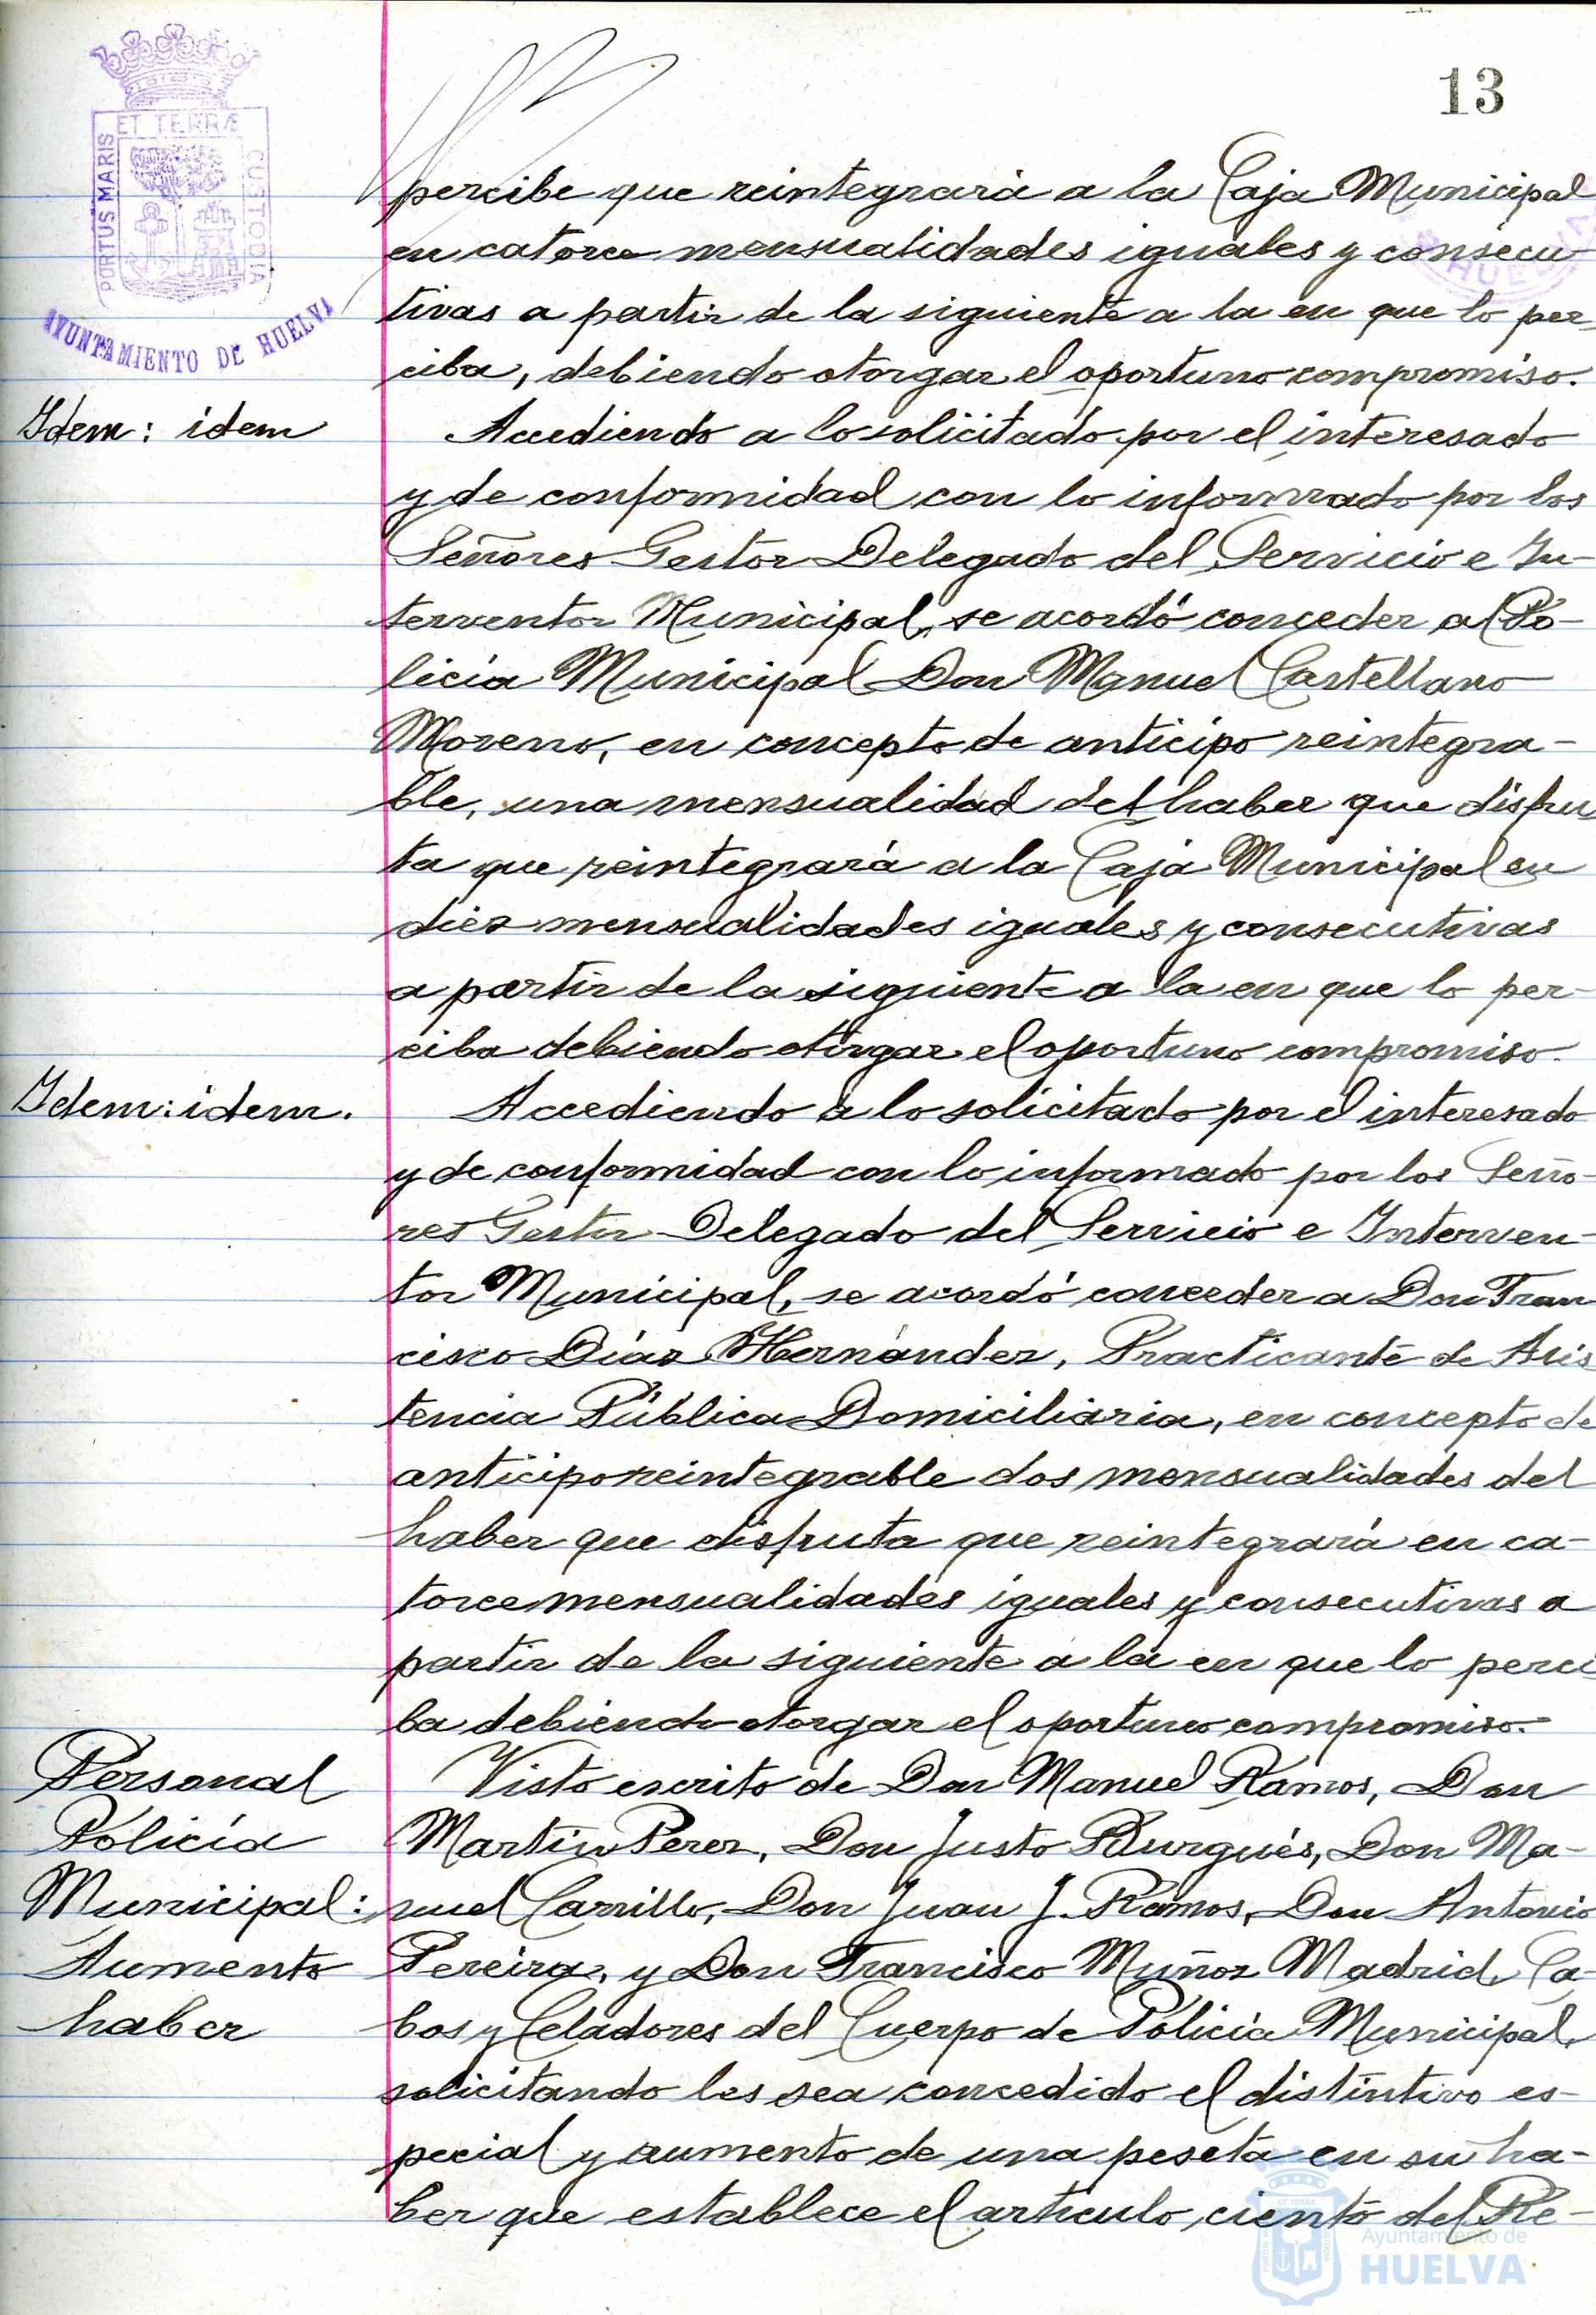 13
PORTUS MARIS
ET TERRÆ
CUSTODIA
AYUNTAMIENTO DE HUELVA
HUELVA
percibe que reintegrará a la Caja Municipal
en catorce mensualidades iguales y consecu-
tivas a partir de la siguiente a la en que lo per-
ciba, debiendo otorgar el oportuno compromiso.
Idem: idem
Accediendo a lo solicitado por el interesado
y de conformidad con lo informado por los
Señores Gestor Delegado del Servicio e In-
terventor Municipal, se acordó conceder al Po-
licía Municipal Don Manuel Castellano
Moreno, en concepto de anticipo reintegra-
ble, una mensualidad del haber que disfru
ta que reintegrará a la Caja Municipal en
diez mensualidades iguales y consecutivas
a partir de la siguiente a la en que lo per-
ciba debiendo otorgar el oportuno compromiso.
Idem: idem.
Accediendo a lo solicitado por el interesado
y de conformidad con lo informado por los Seño-
res Gestor Delegado del Servicio e Interven-
tor Municipal, se acordó conceder a Don Fran
cisco Díaz Hernández, Practicante de Asis
tencia Pública Domiciliaria, en concepto de
anticipo reintegrable dos mensualidades del
haber que disfruta que reintegrará en ca-
torce mensualidades iguales y consecutivas a
partir de la siguiente a la en que lo perci
ba debiendo otorgar el oportuno compromiso.
Personal
Policía
Municipal:
Aumento
haber
Visto escrito de Don Manuel Ramos, Don
Martín Perez, Don Justo Burgués, Don Ma-
nuel Carrillo, Don Juan J. Ramos, Don Antonio
Pereira, y Don Francisco Muñoz Madrid, Ca-
bos y Celadores del Cuerpo de Policía Municipal,
solicitando les sea concedido el distintivo es-
pecial y aumento de una peseta en su ha-
ber que establece el artículo ciento del Re-
Ayuntamiento de
HUELVA